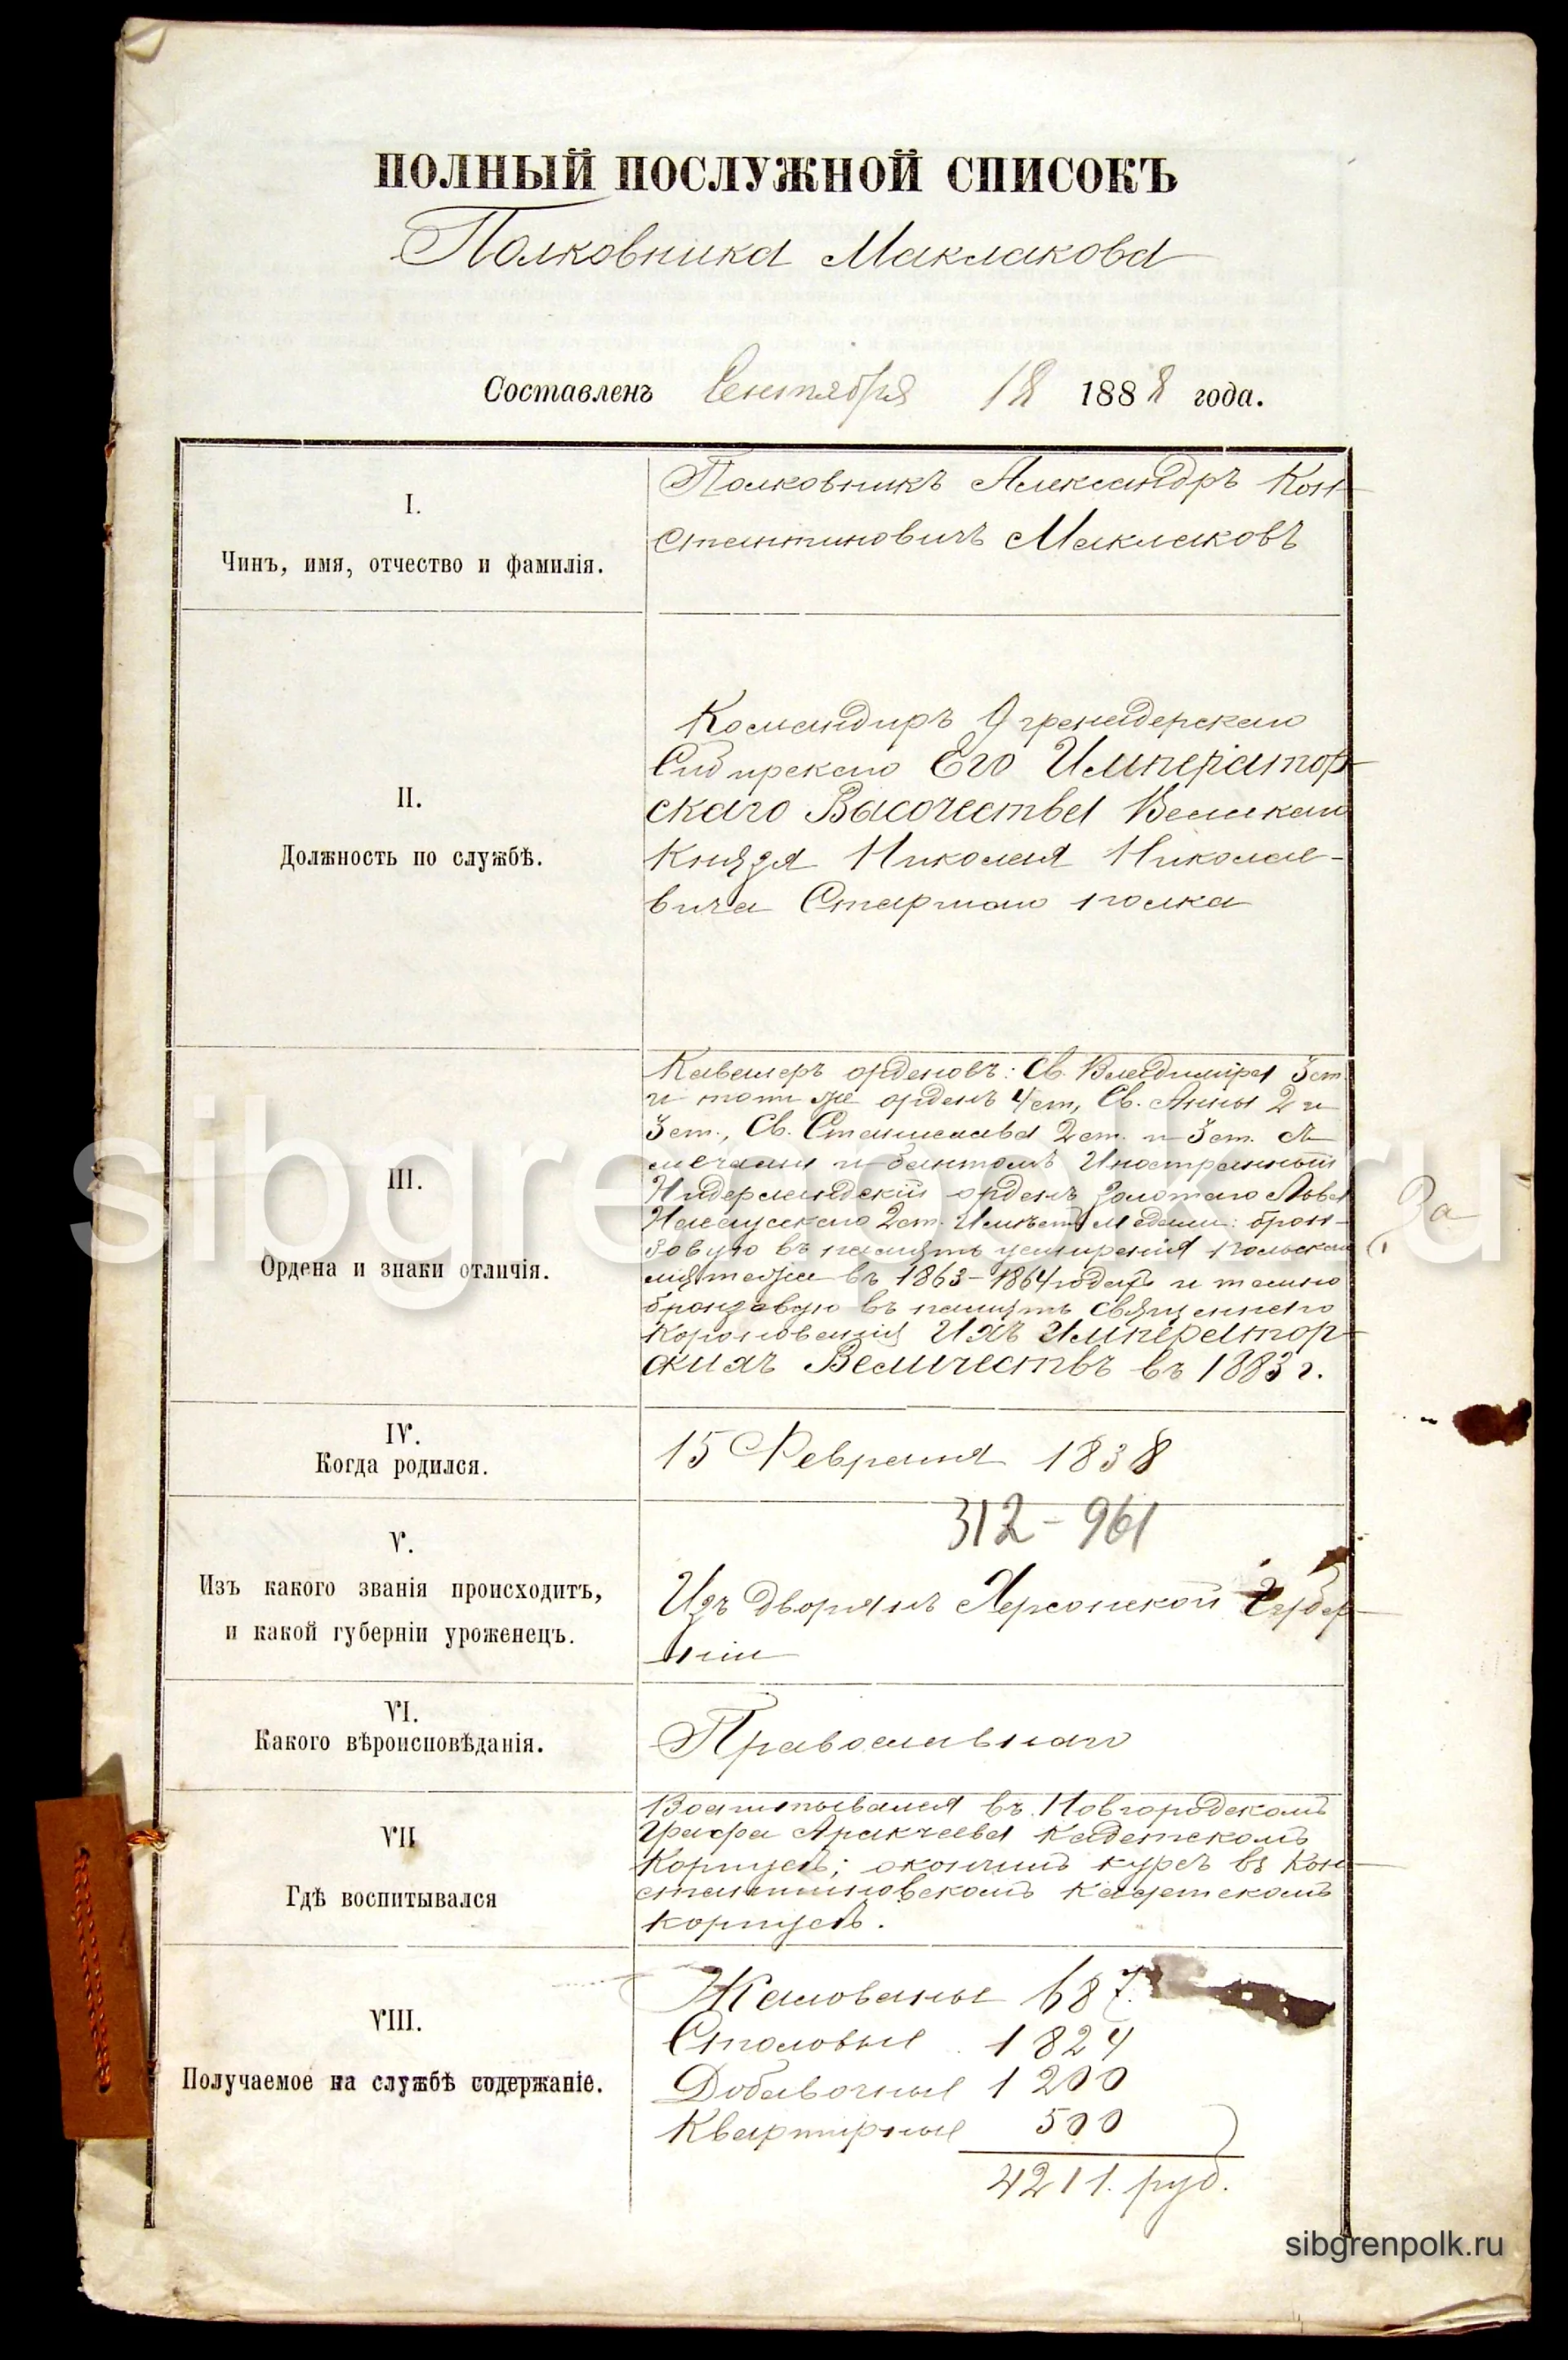 ПОЛНЫЙ ПОСЛУЖНОЙ СПИСОКЪ
Полковника Маклакова
Составленъ Сентября 18 1888 года.
I.
Чинъ, имя, отчество и фамилія.
Полковникъ Александръ Кон-
стантиновичъ Маклаковъ
II.
Должность по службѣ.
Командиръ 9 гренадерскаго
Сибирскаго Его Император-
скаго Высочества Великаго
Князя Николая Николае-
вича Старшаго полка
III.
Ордена и знаки отличія.
Кавалеръ орденовъ: Св. Владиміра 3 ст.
и тотъ же орденъ 4 ст., Св. Анны 2 и
3 ст., Св. Станислава 2 ст. и 3 ст. съ
мечами и бантомъ Иностранный
Нидерландскій орденъ Золотаго Льва
Нассаускаго 2 ст. Имѣетъ медали: брон-
зовую въ память усмиренія польскаго
мятежа въ 1863-1864 годахъ и темно
бронзовую въ память священнаго
коронованія Ихъ Император-
скихъ Величествъ въ 1883 г.
За
IV.
Когда родился.
15 Февраля 1838
312-961
V.
Изъ какого званія происходитъ,
и какой губерніи уроженецъ.
Изъ дворянъ Херсонской Губер-
ніи
VI.
Какого вѣроисповѣданія.
Православнаго
VII
Гдѣ воспитывался
Воспитывался въ Новгородскомъ
Графа Аракчеева Кадетскомъ
Корпусѣ; окончилъ курсъ въ Кон-
стантиновскомъ Кадетскомъ
корпусѣ.
VIII.
Получаемое на службѣ содержаніе.
Жалованье 687.
Столовые 1824
Добавочные 1200
Квартирные 500
4211. руб.
sibgrenpolk.ru
sibgrenpolk.ru